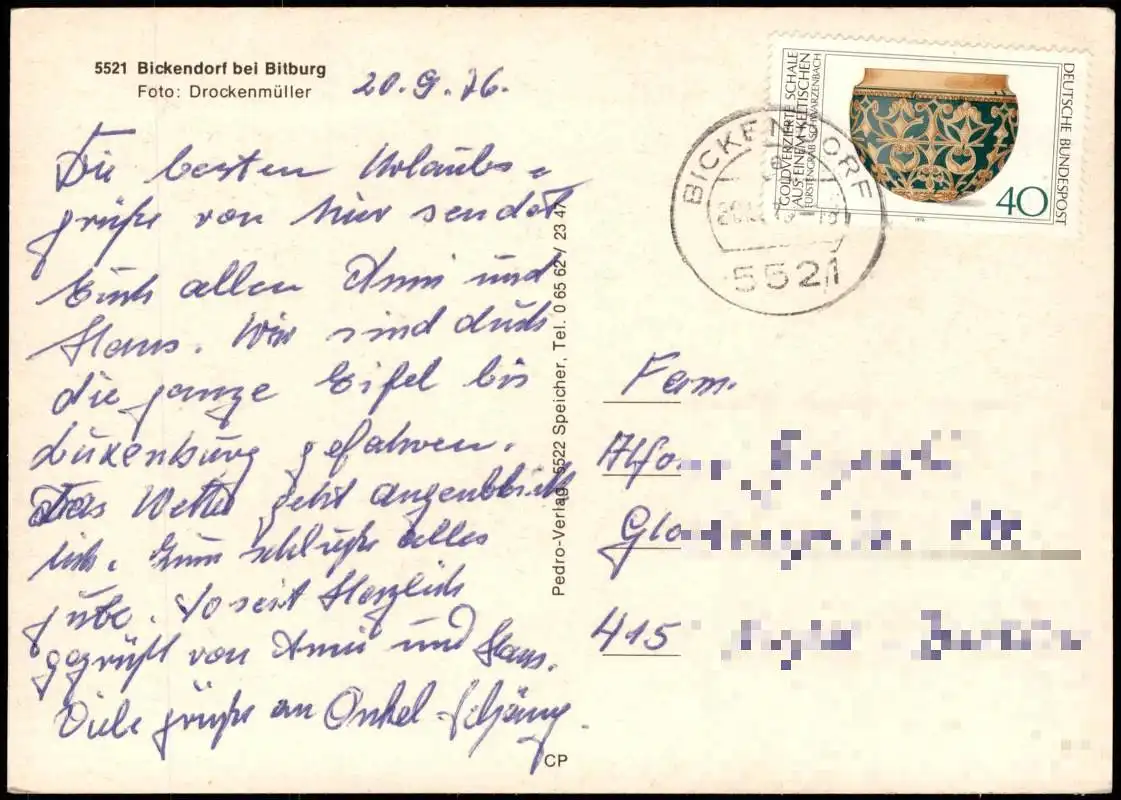 5521 Bickendorf bei Bitburg
Foto: Drockenmüller
20.9.76.
Die besten Urlaubs=
grüße von hier sendet
Euch allen Anni und
Hans. Wir sind durch
die ganze Eifel bis
Luxenburg gefahren.
Das Wetter geht augenblick
lich. Zum schluße alles
gute. So seit Herzlich
gegrüßt von Anni und Hans.
Viele grüße an Onkel
Pedro-Verlag, 5522 Speicher, Tel. 0 65 62 / 23 47
CP
GOLDVERZIERTE SCHALE
AUS EINEM KELTISCHEN
FÜRSTENGRAB SCHWARZENBACH
DEUTSCHE BUNDESPOST
40
BICKENDORF
5521
Fam.
415